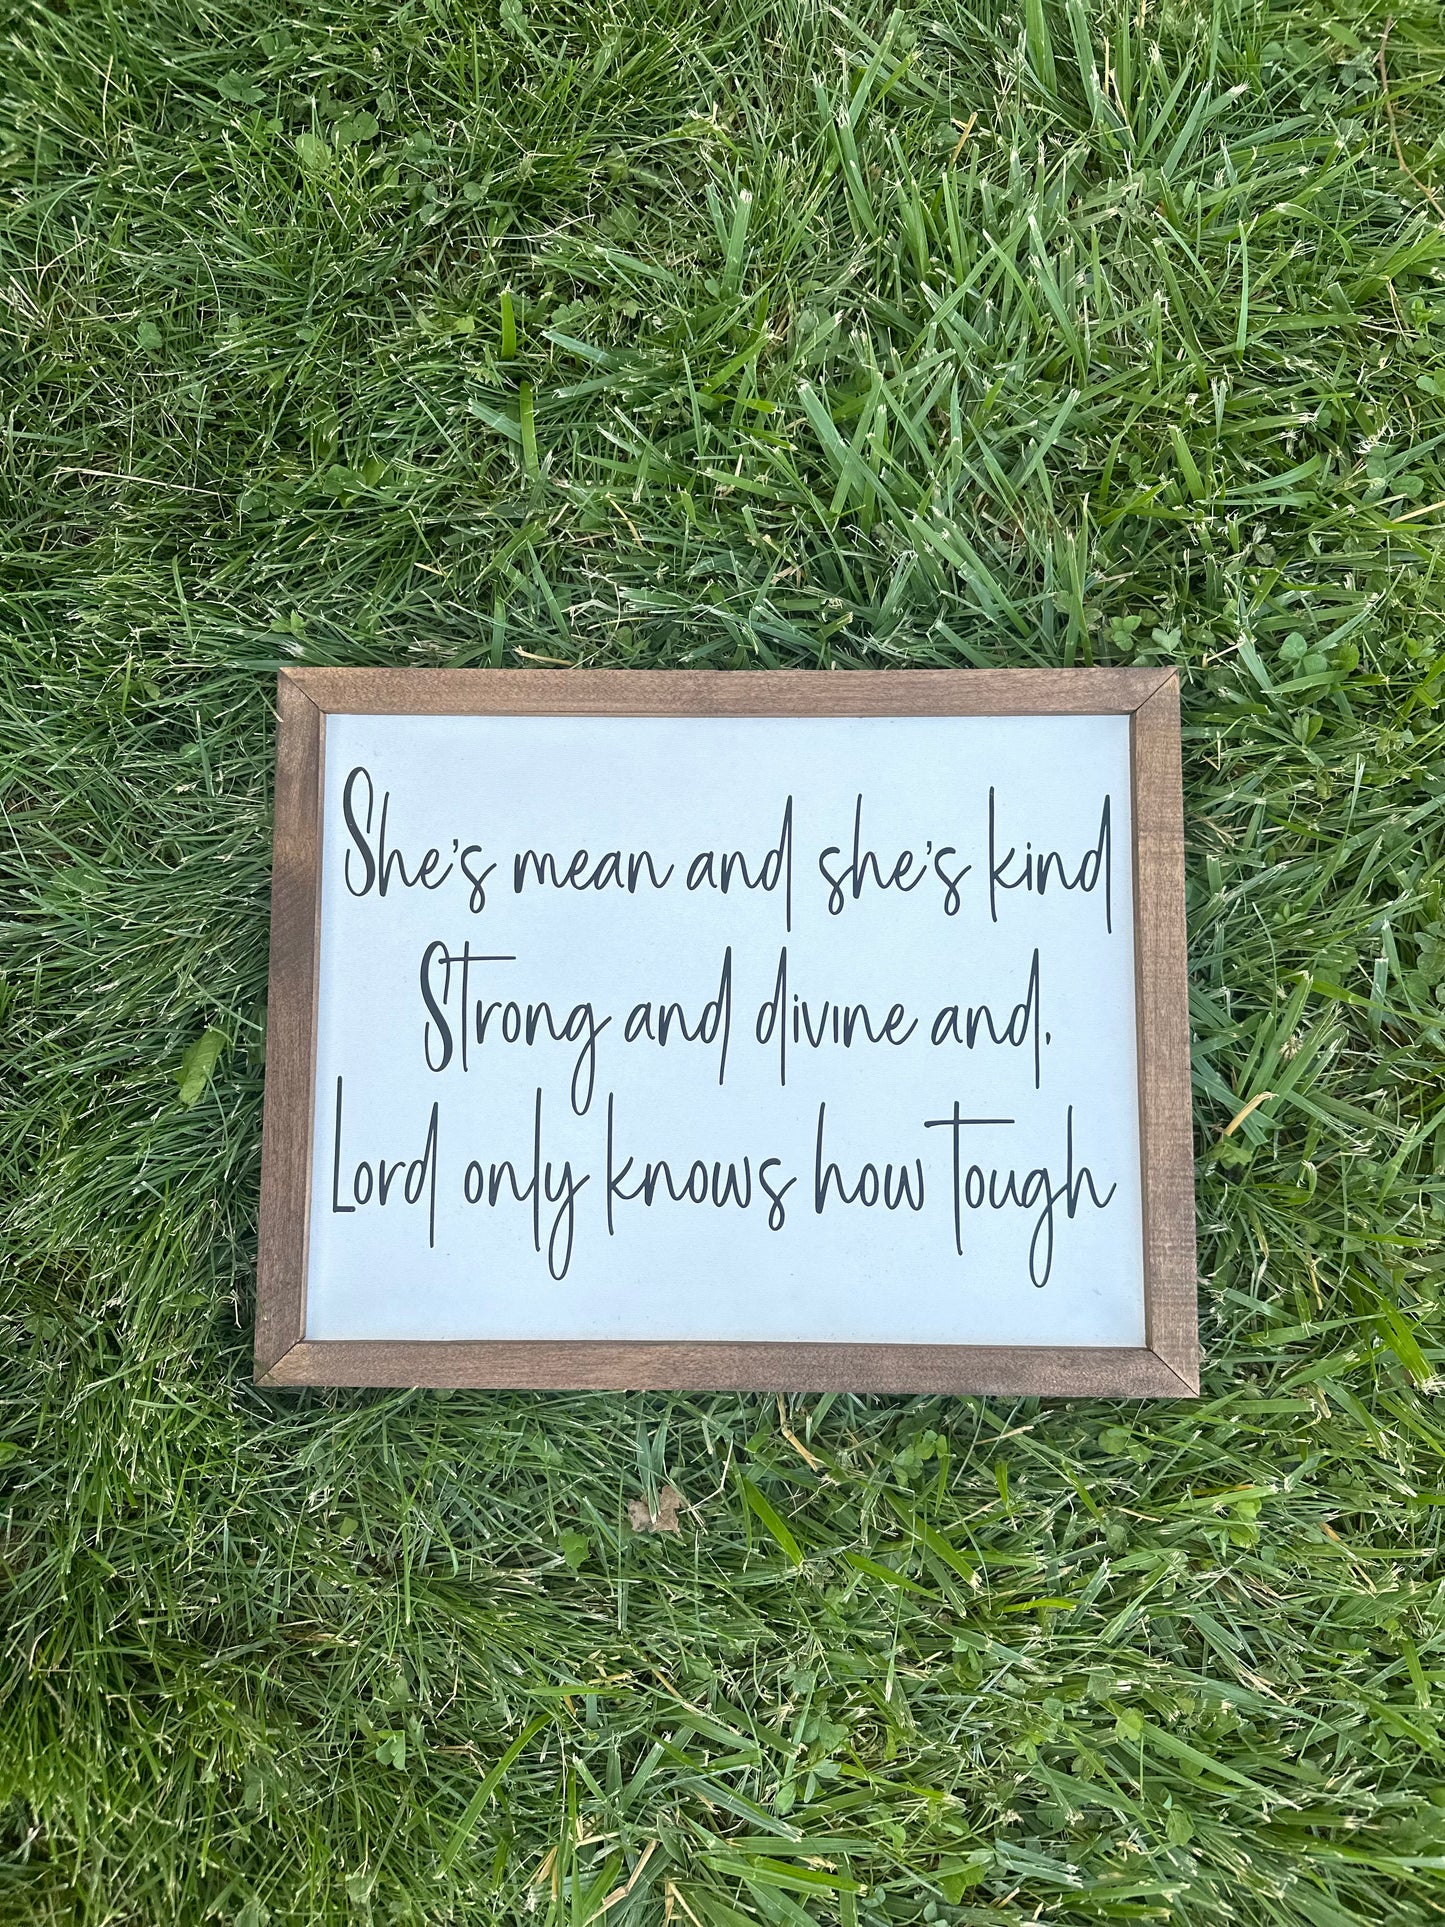 She's mean and she's kind
Strong and divine and,
Lord only knows how tough